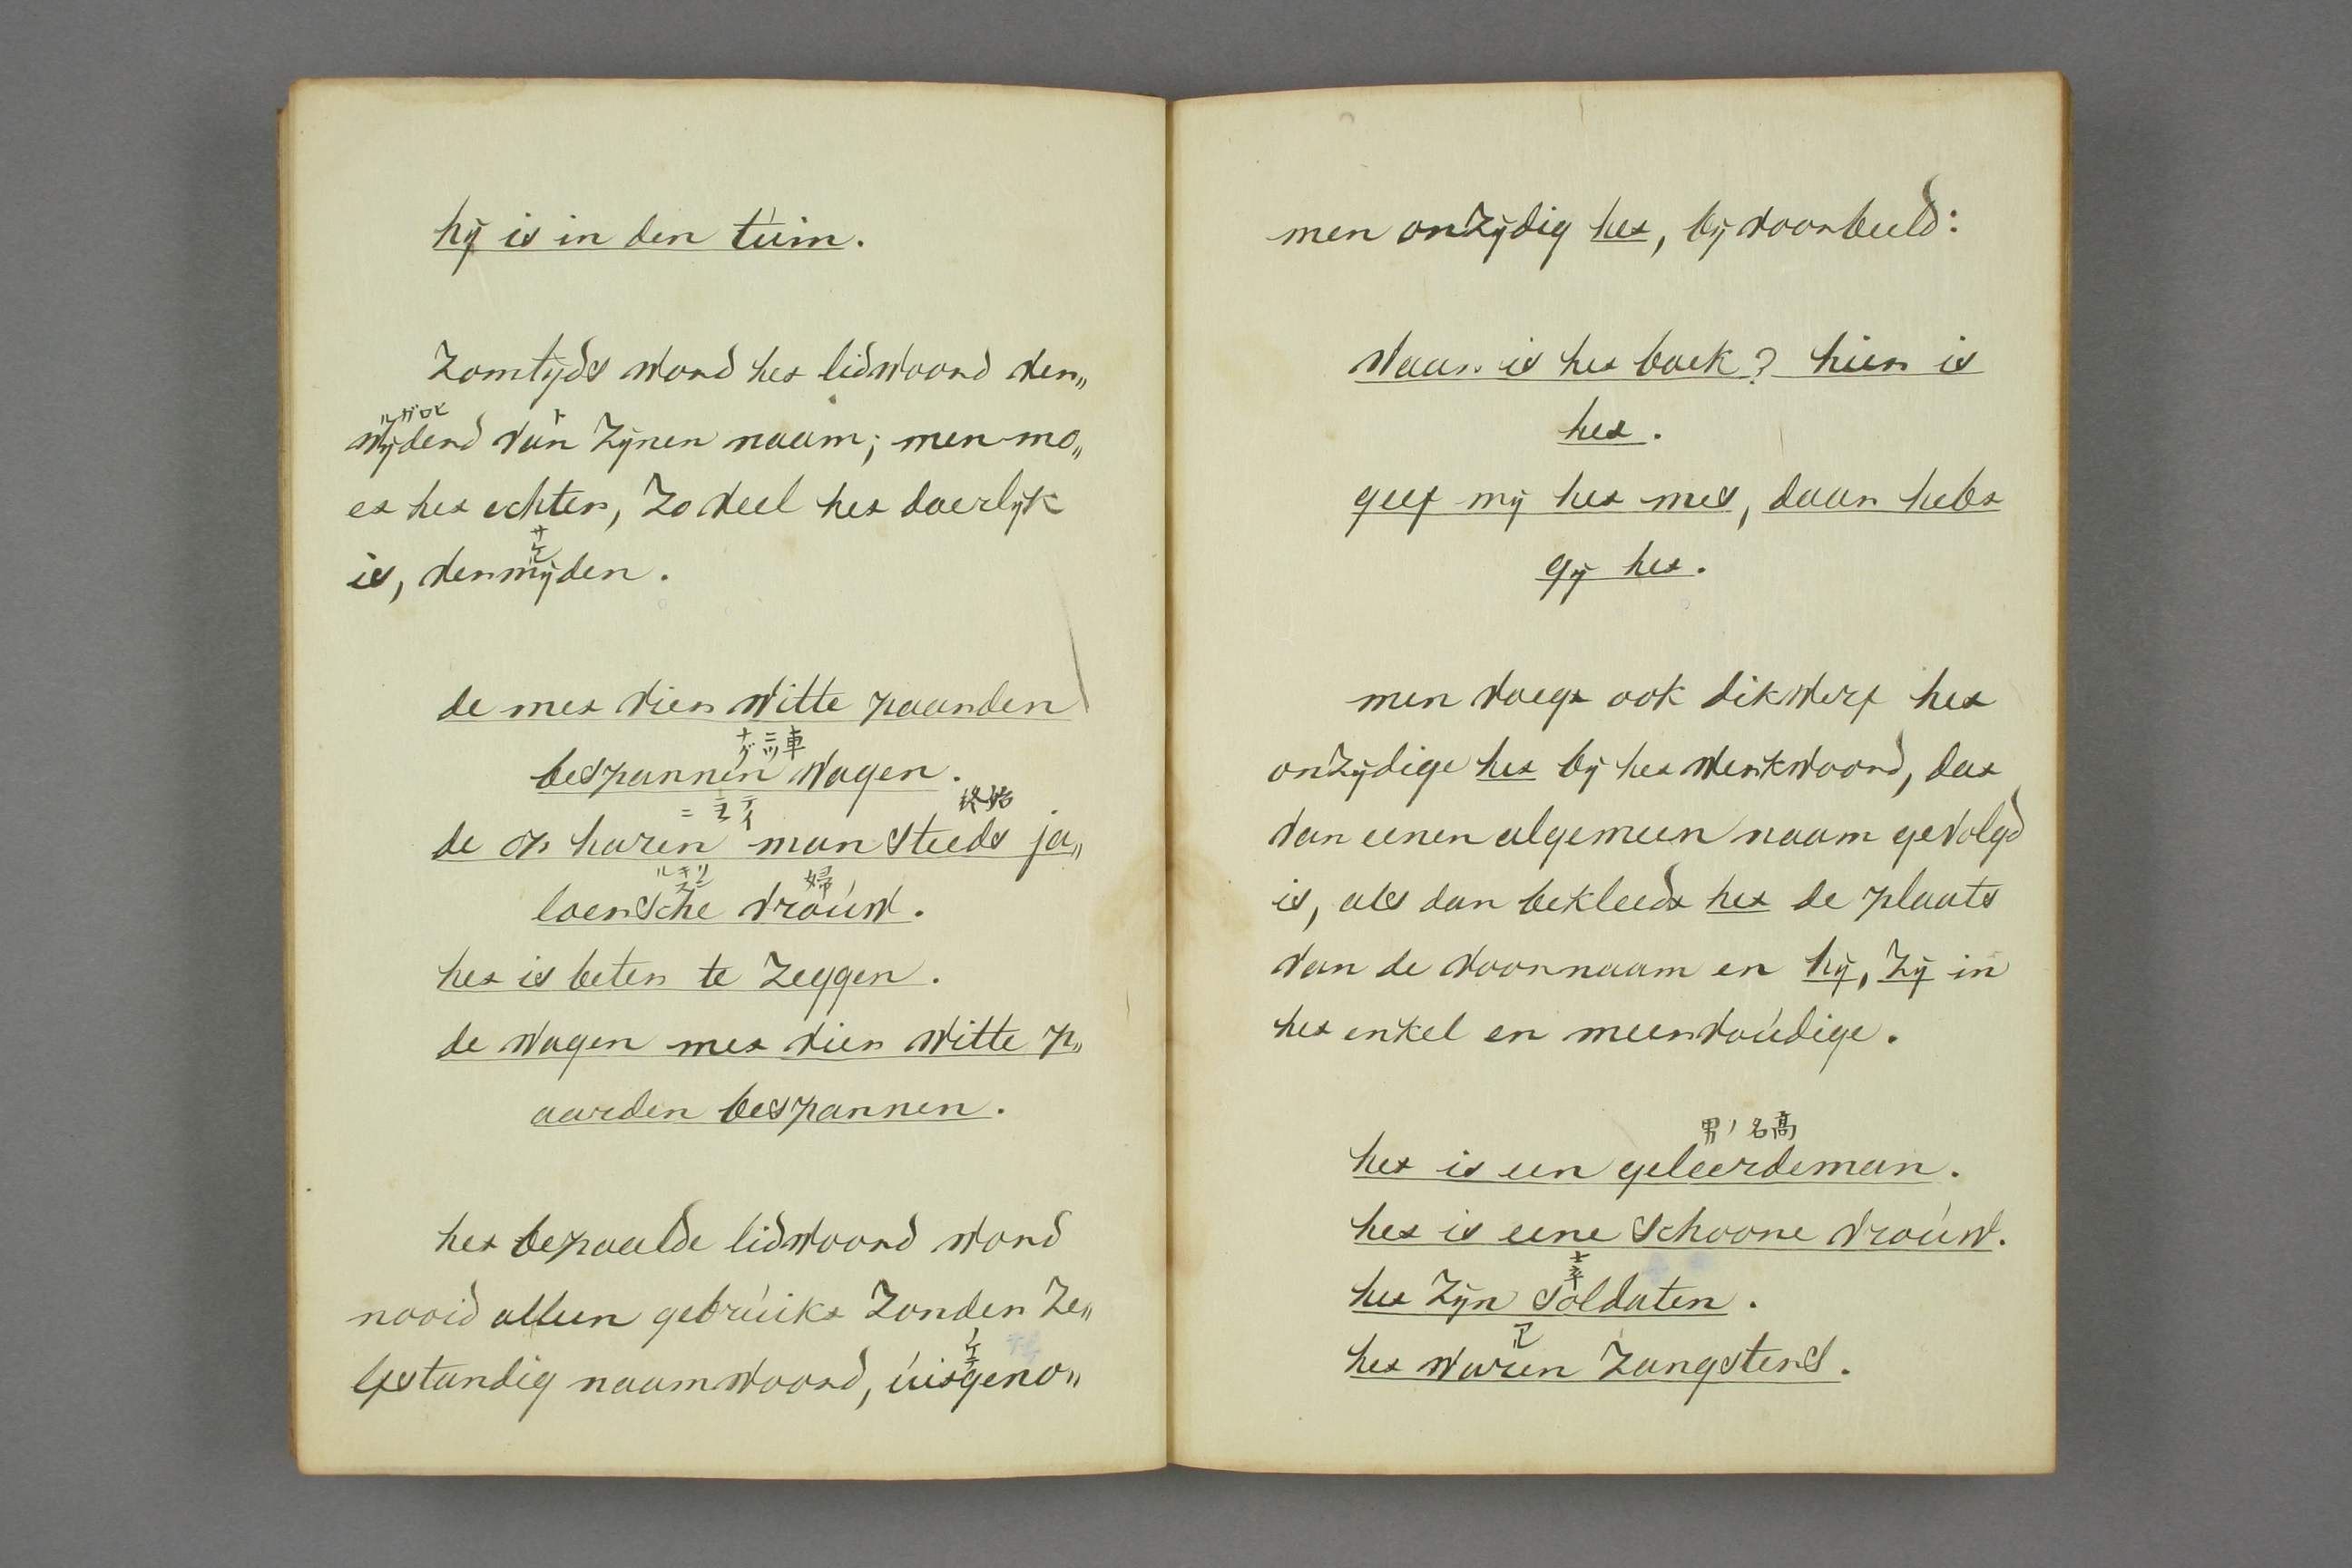 hij is in den tuin.
Zomtijds word het lidwoord ver„
wijderd van zijnen naam; men mo„
et het echter, zo veel het doenlijk
is, vermijden.
de met vier witte paarden
bespannen wagen.
de op haren man steeds ja„
loersche vrouw.
het is beter te zeggen.
de wagen met vier witte p„
aarden bespannen.
het bepaalde lidwoord word
nooid alleen gebruikt zonder ze„
lfstandig naamwoord, uitgeno„
men onzijdig het, bij voorbeeld:
Waar is het boek? hier is
het.
geef mij het mes, daar hebt
gij het.
men voegt ook dikwerf het
onzijdige het bij het werkwoord, dat
van eenen algemeen naam gevolgd
is, als dan bekleedt het de plaats
van de voornaam en hij, zij in
het enkel en meervoudige.
男ノ名高
het is een geleerdeman.
het is eene schoone vrouw.
士卒
het zijn soldaten.
het waren zangsters.